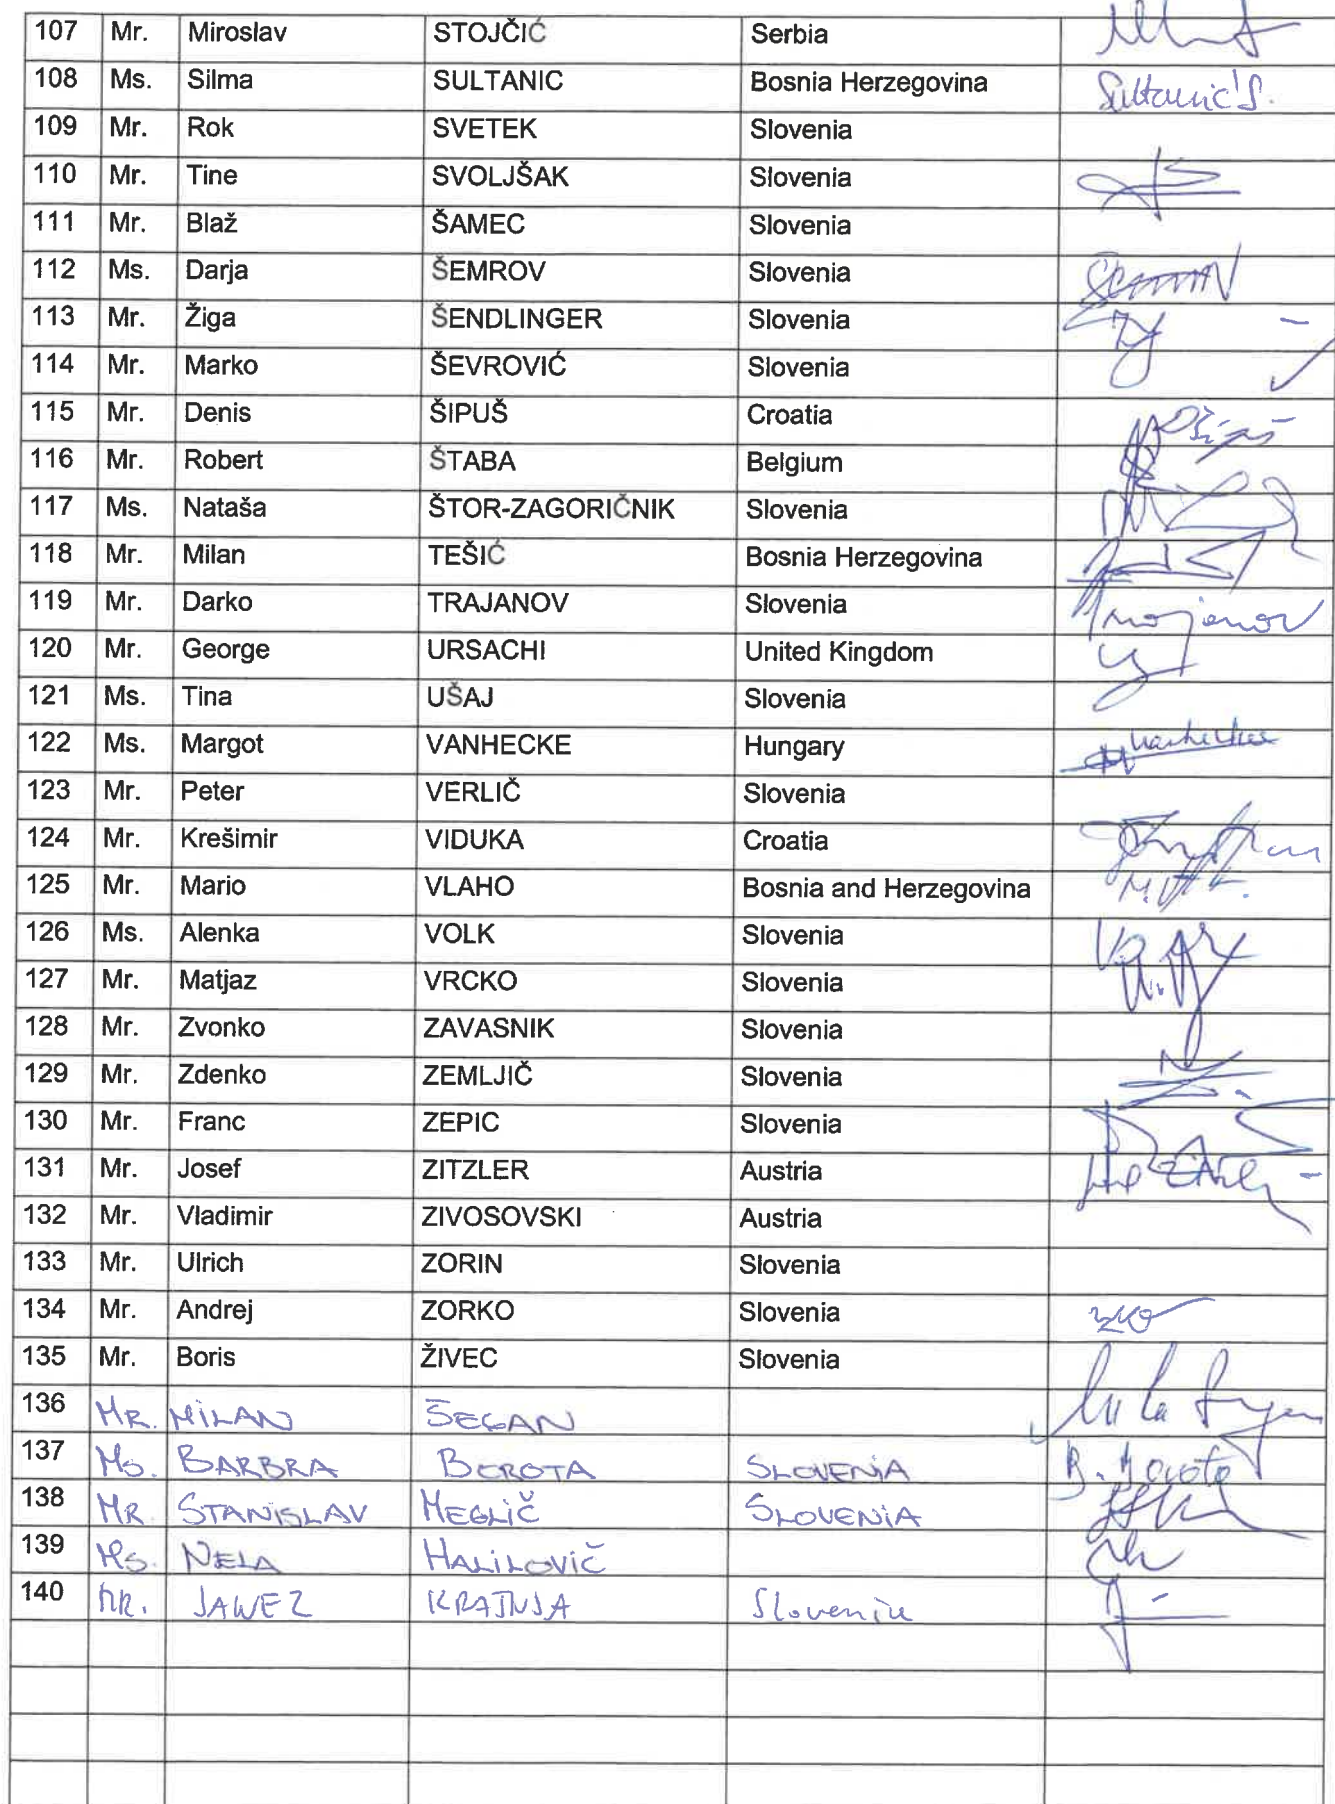 107 Mr. Miroslav STOJČIĆ Serbia
108 Ms. Silma SULTANIC Bosnia Herzegovina Sultanic' S.
109 Mr. Rok SVETEK Slovenia
110 Mr. Tine SVOLJŠAK Slovenia
111 Mr. Blaž ŠAMEC Slovenia
112 Ms. Darja ŠEMROV Slovenia
113 Mr. Žiga ŠENDLINGER Slovenia
114 Mr. Marko ŠEVROVIĆ Slovenia
115 Mr. Denis ŠIPUŠ Croatia
116 Mr. Robert ŠTABA Belgium
117 Ms. Nataša ŠTOR-ZAGORIČNIK Slovenia
118 Mr. Milan TEŠIĆ Bosnia Herzegovina
119 Mr. Darko TRAJANOV Slovenia Trajanov
120 Mr. George URSACHI United Kingdom
121 Ms. Tina UŠAJ Slovenia
122 Ms. Margot VANHECKE Hungary Vanhecke
123 Mr. Peter VERLIČ Slovenia
124 Mr. Krešimir VIDUKA Croatia
125 Mr. Mario VLAHO Bosnia and Herzegovina
126 Ms. Alenka VOLK Slovenia
127 Mr. Matjaz VRCKO Slovenia
128 Mr. Zvonko ZAVASNIK Slovenia
129 Mr. Zdenko ZEMLJIČ Slovenia
130 Mr. Franc ZEPIC Slovenia
131 Mr. Josef ZITZLER Austria
132 Mr. Vladimir ZIVOSOVSKI Austria
133 Mr. Ulrich ZORIN Slovenia
134 Mr. Andrej ZORKO Slovenia
135 Mr. Boris ŽIVEC Slovenia
136 MR. MILAN ŠEGAN
137 Ms. BARBRA BOROTA SLOVENIA B. Borota
138 MR STANISLAV MEGLIČ SLOVENIA
139 Ms. NELA HALILOVIČ
140 MR. JANEZ KRAJNJA Slovenia